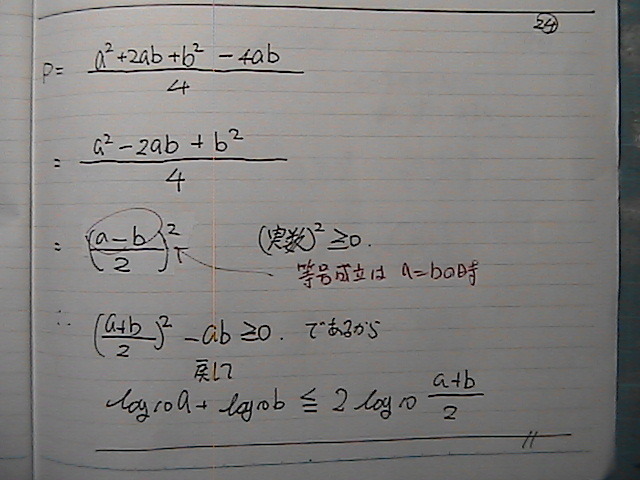 24
P= (a²+2ab+b² - 4ab)/4
= (a² - 2ab + b²)/4
= ((a-b)/2)² (実数)² ≧0.
等号成立は a=bの時
∴ ((a+b)/2)² - ab ≧0. であるから
戻して
log10a + log10b ≦ 2 log10 (a+b)/2